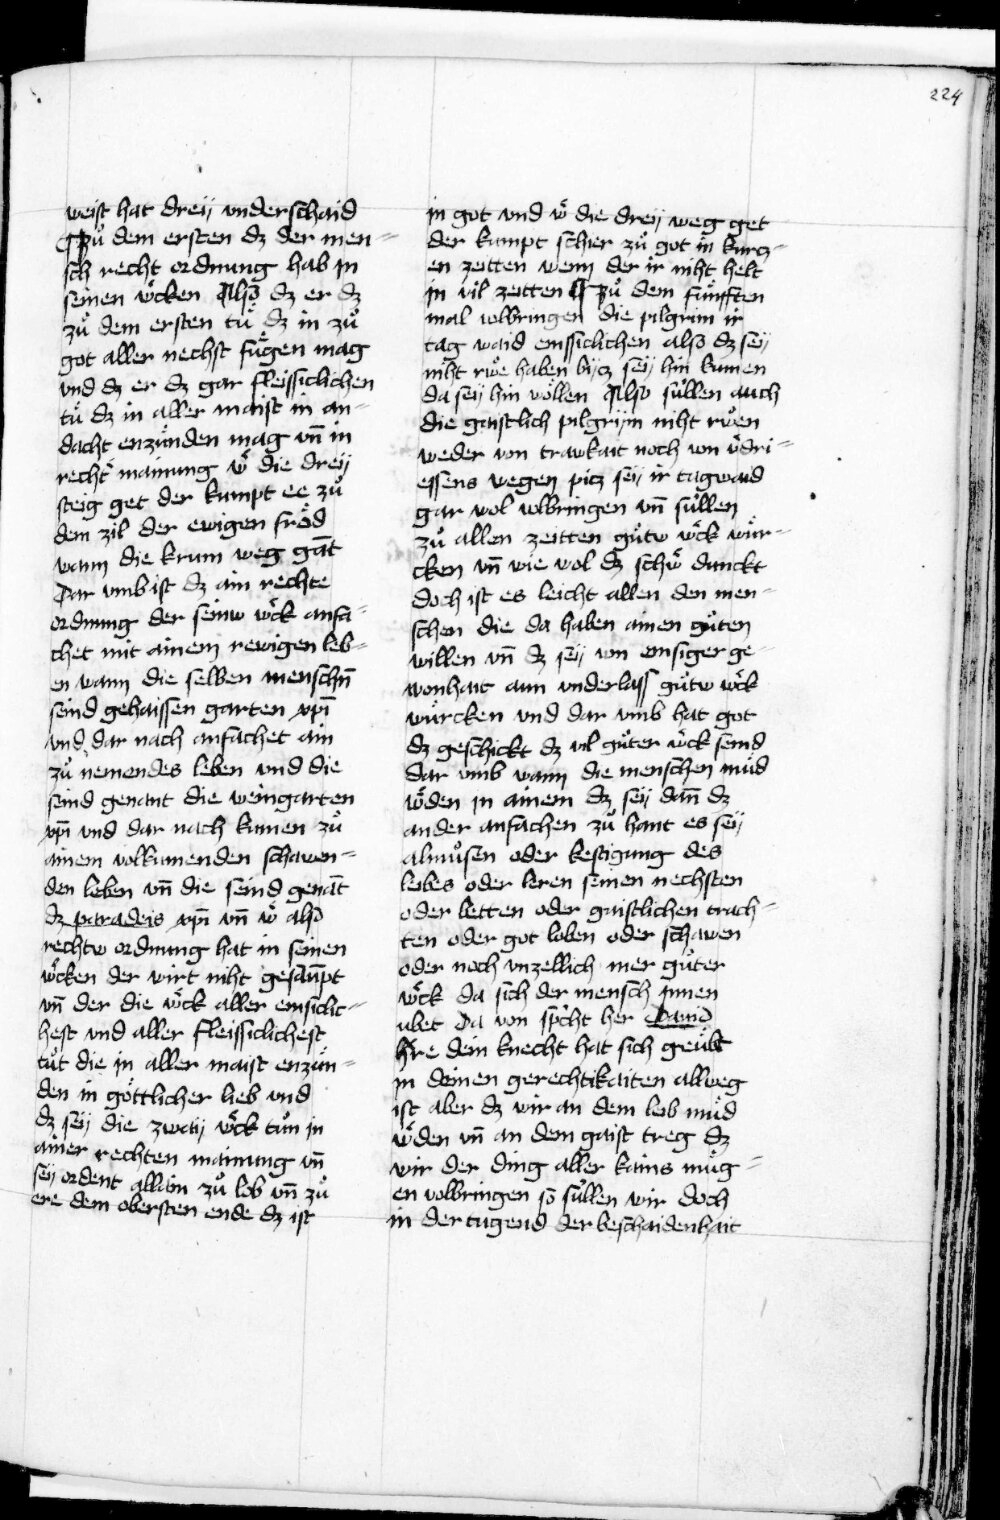 224
weist hat dreÿ vnderschaid
¶ Zuͦ dem ersten dz der men=
sch recht ordnung hab in
seinen woͤcken Also dz er dz
zuͦ dem ersten tuͤ dz in zuͦ
got aller nechst fuͤgen mag
vnd dz er dz gar fleissiclichen
tuͤ dz in aller maist in an=
dacht enzünden mag vn̄ in
recht mainung woͤ die dreÿ
steig get der kumpt ee zuͦ
dem zil der ewigen froͤd
wann die krum weg gāt
Dar vmb ist dz ain rechte
ordnung der seinw woͤck anfa=
chet mit ainem rewigen leb=
en wann die selben menschn̄
seind gehaissen garten xpī
vnd dar nach anfachet ain
zuͦ nemendes leben vnd die
seind genant die weingarten
xpī vnd dar nach kumen zuͦ
ainem volkumenden schawen=
den leben vn̄ die seind genāt
dz paradeis xpī vn̄ woͤ also
rechtw ordnung hat in seinen
woͤcken der wirt niht gesaumpt
vn̄ der die woͤck aller emsiclic=
hest vnd aller fleissiclichest
tuͦt die in aller maist enzün=
den in goͤttlicher lieb vnd
dz seÿ die zwaiÿ woͤck tuͦn in
ainer rechten mainung vn̄
seÿ ordent allain zuͦ lob vn̄ zuͦ
ere dem obersten ende dz ist
in got vnd woͤ die dreÿ weg get
der kumpt schier zuͦ got in kurcz=
en zeitten wenn der ir niht helt
in vil zeitten ¶ Zuͦ dem fuͤnfften
mal volbringen die pilgrim ir
tag waid emssiclichen also dz seÿ
niht ruͦe haben bÿcz seÿ hin kumen
da seÿ hin woͤllen Also süllen auch
die gaistlich pilgrÿm niht ruͦen
weder von trawkait noch von v̄dri=
essens wegen picz seÿ ir tagwaid
gar wol volbringen vn̄ süllen
zuͦ allen zeitten guͦtw woͤck wür=
cken vn̄ wie wol dz schwoͤ dunckt
doch ist es leicht allen den men=
schen die da haben ainen guͦten
willen vn̄ dz seÿ von emsiger ge=
wonhait aun vnderlass guͦtw woͤck
würcken vnd dar vmb hat got
dz geschickt dz vil guͦter woͤck seind
dar vmb wann die menschen muͤd
woͤden in ainem dz seÿ dan̄ dz
ander anfachen zuͦ hant es seÿ
almuͦsen oder kestigung des
leibes oder leren seinen nechsten
oder betten oder gaistlichen trach=
ten oder got loben oder schawen
oder noch vnzellich mer guͦter
woͤck da sich der mensch innen
ubet Da von spͥcht her Dauid
hͤre dein knecht hat sich geuͤbt
in deinen gerechtikaiten allweg
ist aber dz wir an dem leib muͤd
woͤden vn̄ an dem gaist treg dz
wir der ding aller kains muͤg=
en volbringen so süllen wir doch
in der tugend der beschaidenhait